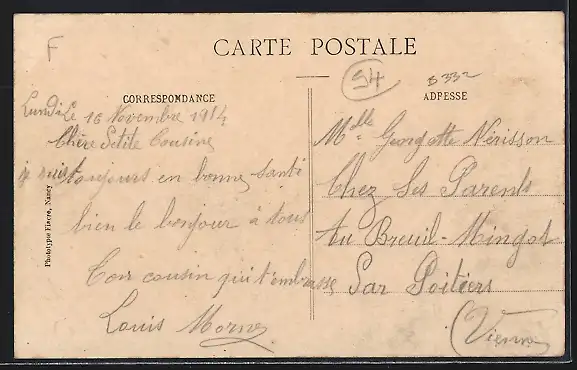 F
CARTE POSTALE
54
8332
CORRESPONDANCE
ADRESSE
Lundi Le 16 Novembre 1914
Chère Petite Cousine
je suis toujours en bonne Santé
bien le bonjour à tous
Ton cousin qui t'embrasse
Louis
Phototypie Fierre, Nancy
Mlle Georgette Nérisson
Chez Ses Parents
Au Breuil-Mingot
Par Poitiers
(Vienne)